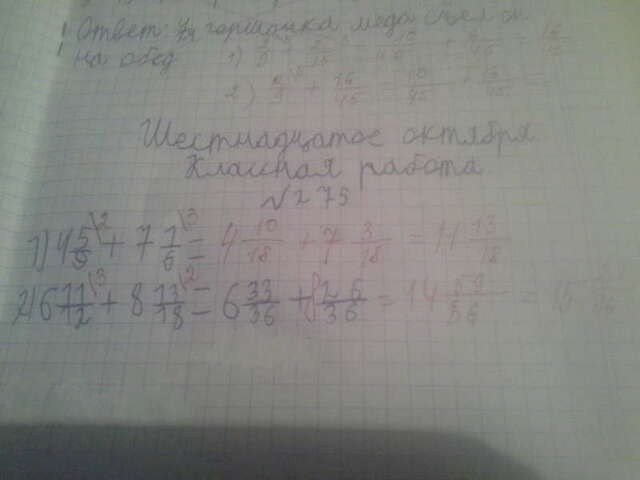 Ответ: горшочка меда съел он
на обед 1)
2) + 16/45 = 10/45 + 16/45 =
Шестнадцатое октября.
Классная работа
№275
1) 4 5/9 \2 + 7 1/6 \3 = 4 10/18 + 7 3/18 = 11 13/18
2) 6 11/12 \3 + 8 13/18 \2 = 6 33/36 + 8 26/36 = 14 59/36 = 15